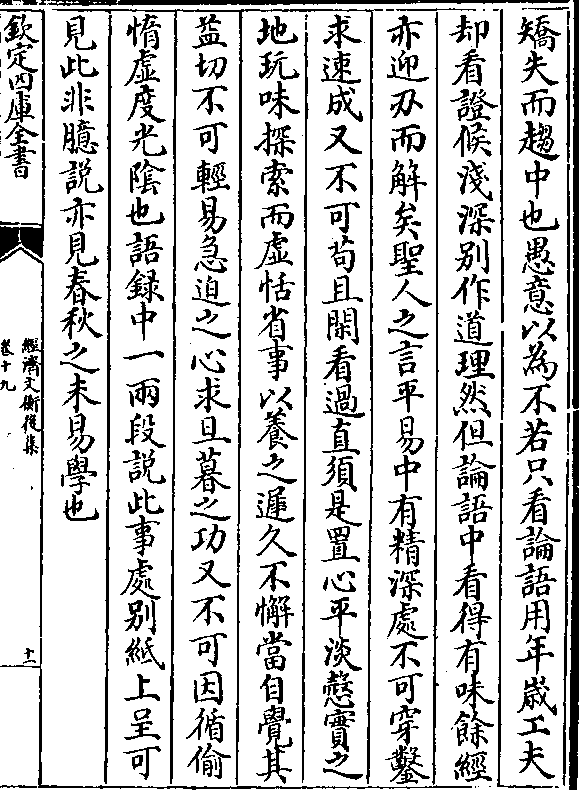 矯失而趨中也愚意以為不若只看論語用年嵗工夫
却看證候淺深别作道理然但論語中看得有味餘經
亦迎刃而解矣聖人之言平易中有精深處不可穿鑿
求速成又不可苟且閑看過直須是置心平淡慤實之
地玩味探索而虛恬省事以養之遲久不懈當自覺其
益切不可輕易急迫之心求旦暮之功又不可因循偷
惰虛度光隂也語録中一兩段説此事處别紙上呈可
見此非臆説亦見春秋之未易學也
欽定四庫全書
經濟文衡後集
卷十九
十一